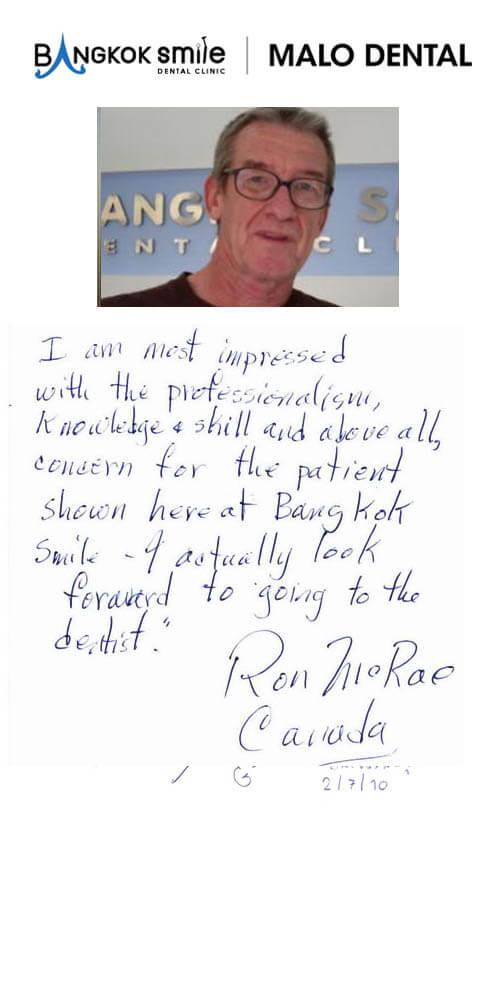 BANGKOK smile
DENTAL CLINIC
MALO DENTAL
ANG S
ENT CL
I am most impressed
with the professionalism,
Knowledge & skill and above all,
concern for the patient
shown here at Bangkok
Smile - I actually look
forward to "going to the
dentist."
Ron McRae
Canada
2/7/10